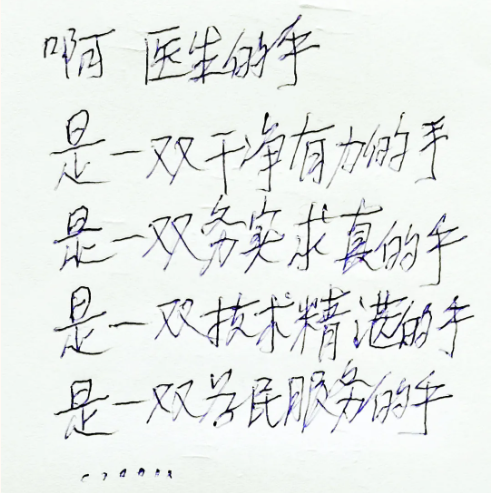 啊 医生的手
是一双干净有力的手
是一双务实求真的手
是一双技术精湛的手
是一双为民服务的手
......